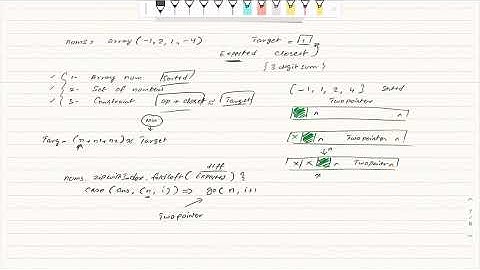 nums = array (-1, 2, 1, -4)
Target = 1
Expected closest
{ 3 digit sum }
1- Array num sorted
2- Set of number
3- Constraint op + closet is Target
Min
[-1, 1, 2, 4] sorted
Two pointer
n
x n Two pointer n
x x n Two pointer n
Targ - (n + n1 + n2) is Target
diff
nums. zipwithIndex. foldLeft (Expected) {
case (ans, (n, i)) => go ( n, i+1
Two pointer